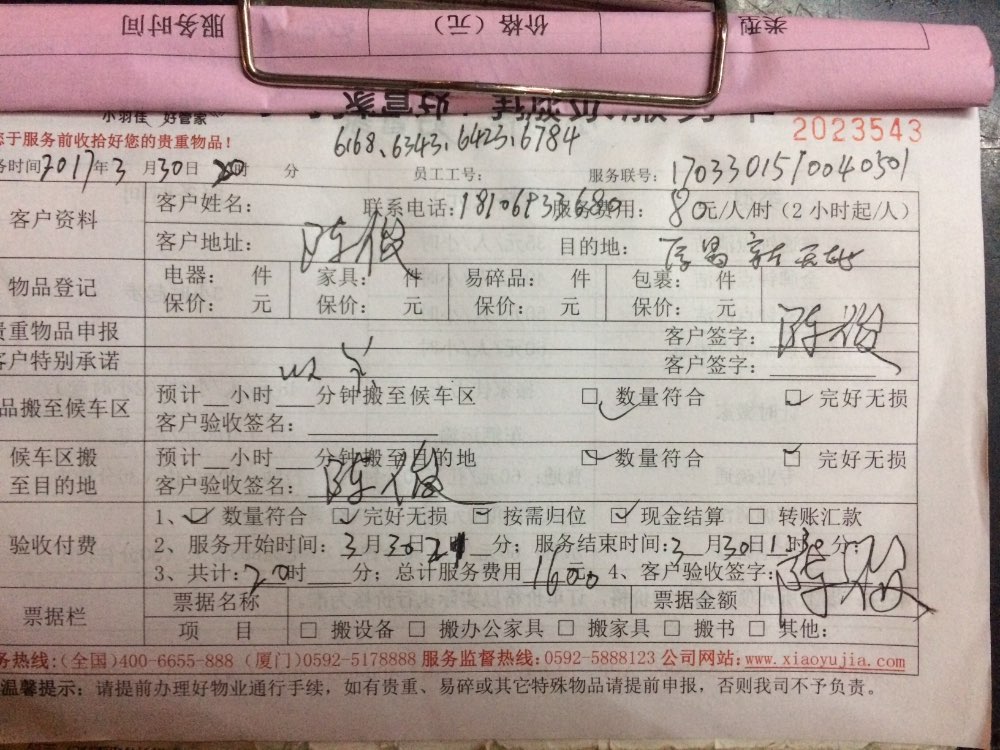 服务时间 价格（元） 类型
小羽佳 好管家
2023543
您于服务前收拾好您的贵重物品！
6168、6343、6423、6784
务时间2017年3月30日20时 分 员工工号： 服务联号：1703301510040501
客户资料 客户姓名： 联系电话： 服务费用：80元/人/时（2小时起/人）
客户地址：陈俊 目的地：
物品登记 电器： 件 家具： 件 易碎品： 件 包裹： 件
保价： 元 保价： 元 保价： 元 保价： 元
贵重物品申报 客户签字：陈俊
客户特别承诺 客户签字：
品搬至候车区 预计__小时___分钟搬至候车区 □ 数量符合 □ 完好无损
客户验收签名：
候车区搬至目的地 预计__小时___分钟搬至目的地 □ 数量符合 □ 完好无损
客户验收签名：陈俊
验收付费 1、□ 数量符合 □ 完好无损 □ 按需归位 □ 现金结算 □ 转账汇款
2、服务开始时间：3月30日21时__分；服务结束时间：3月30日1时30分；
3、共计：20时___分；总计服务费用1600元 4、客户验收签字：陈俊
票据栏 票据名称 票据金额
项 目 □ 搬设备 □ 搬办公家具 □ 搬家具 □ 搬书 □ 其他：
务热线：(全国)400-6655-888 (厦门)0592-5178888 服务监督热线：0592-5888123 公司网站：www.xiaoyujia.com
温馨提示：请提前办理好物业通行手续，如有贵重、易碎或其它特殊物品请提前申报，否则我司不予负责。